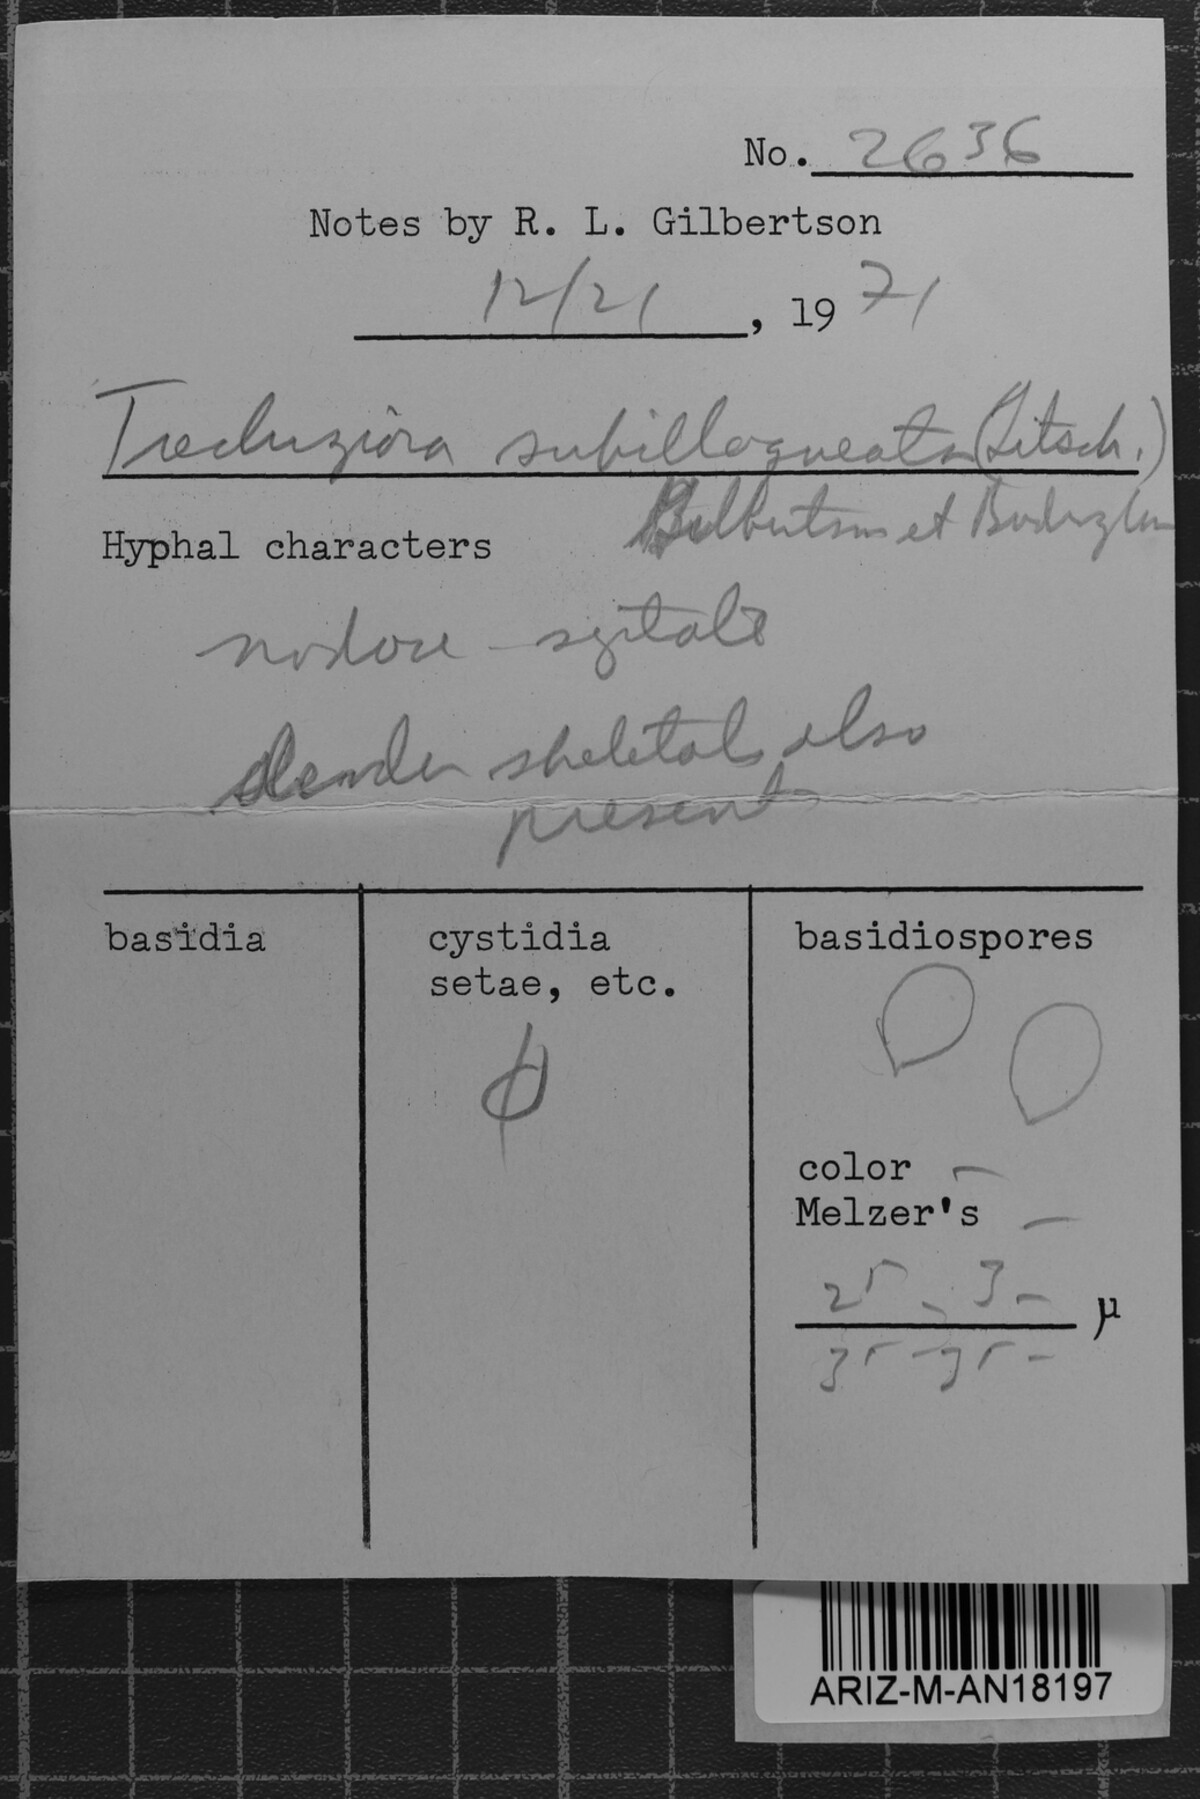 No. 2636
Notes by R. L. Gilbertson
12/21, 1971
Trechispora subillaqueata (Litsch.)
Hyphal characters
nodose - septate
slender skeletals also
present
basidia
cystidia
setae, etc.
basidiospores
color —
Melzer's —
25 - 3 - µ
35 - 35 -
ARIZ-M-AN18197